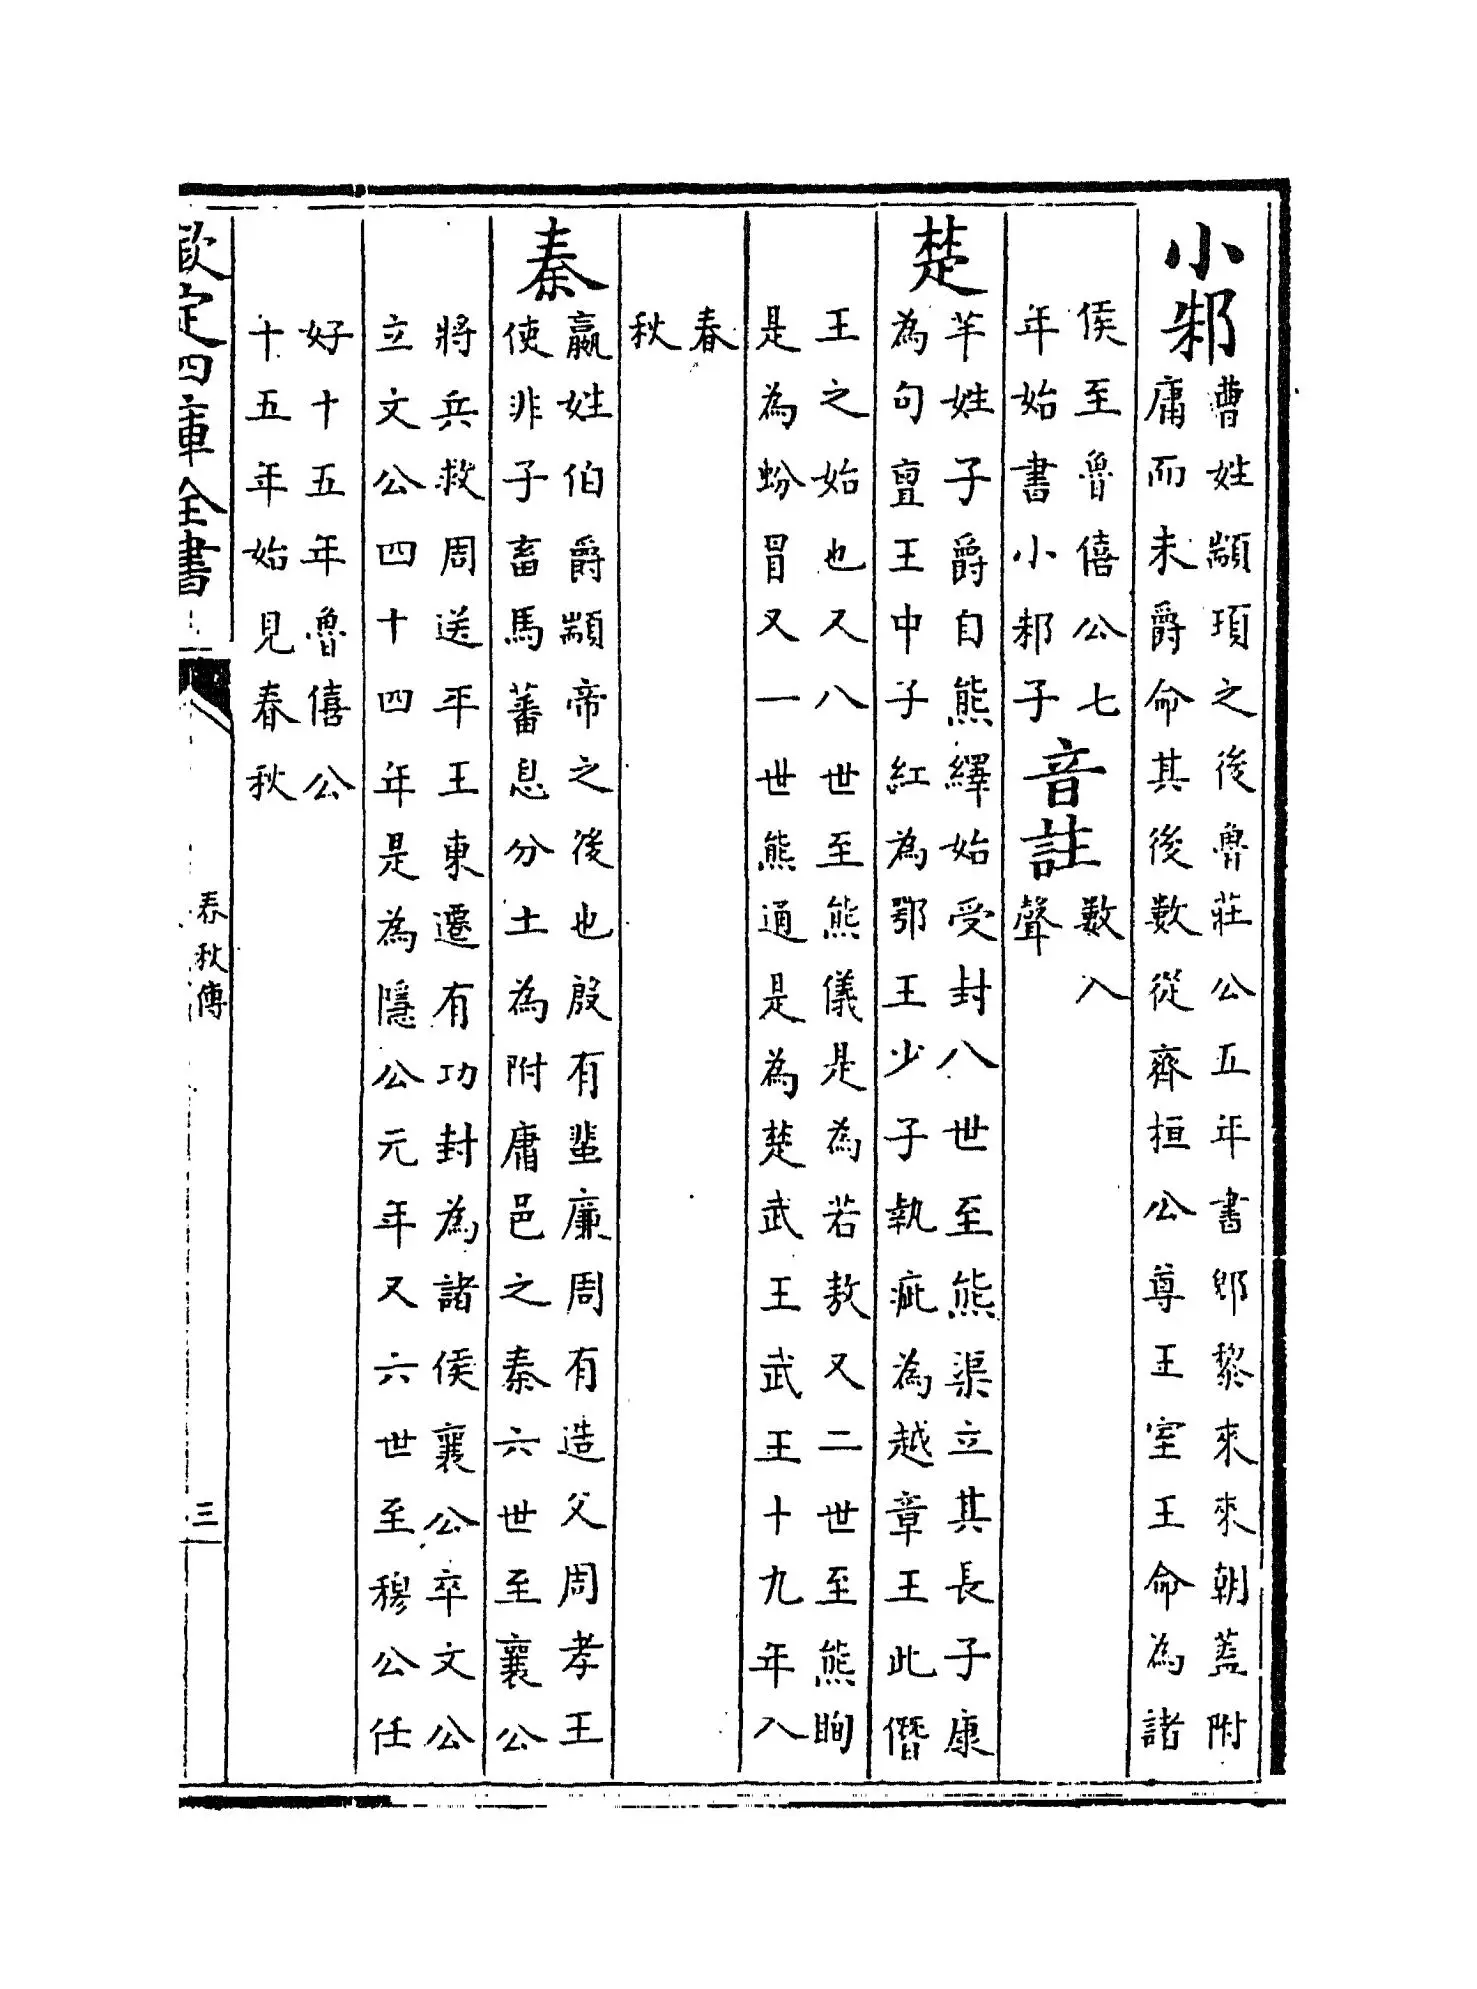 小邾
曹姓顓頊之後魯莊公五年書郳黎來來朝蓋附
庸而未爵命其後數從齊桓公尊王室王命為諸
侯至魯僖公七
年始書小邾子
音註
數入
聲
楚
芊姓子爵自熊繹始受封八世至熊渠立其長子康
為句亶王中子紅為鄂王少子執疵為越章王此僭
王之始也又八世至熊儀是為若敖又二世至熊眴
是為蚡冒又一世熊通是為楚武王武王十九年入
春
秋
秦
嬴姓伯爵顓帝之後也殷有蜚廉周有造父周孝王
使非子畜馬蕃息分土為附庸邑之秦六世至襄公
將兵救周送平王東遷有功封為諸侯襄公卒文公
立文公四十四年是為隱公元年又六世至穆公任
好十五年魯僖公
十五年始見春秋
欽定四庫全書
春秋傳
三